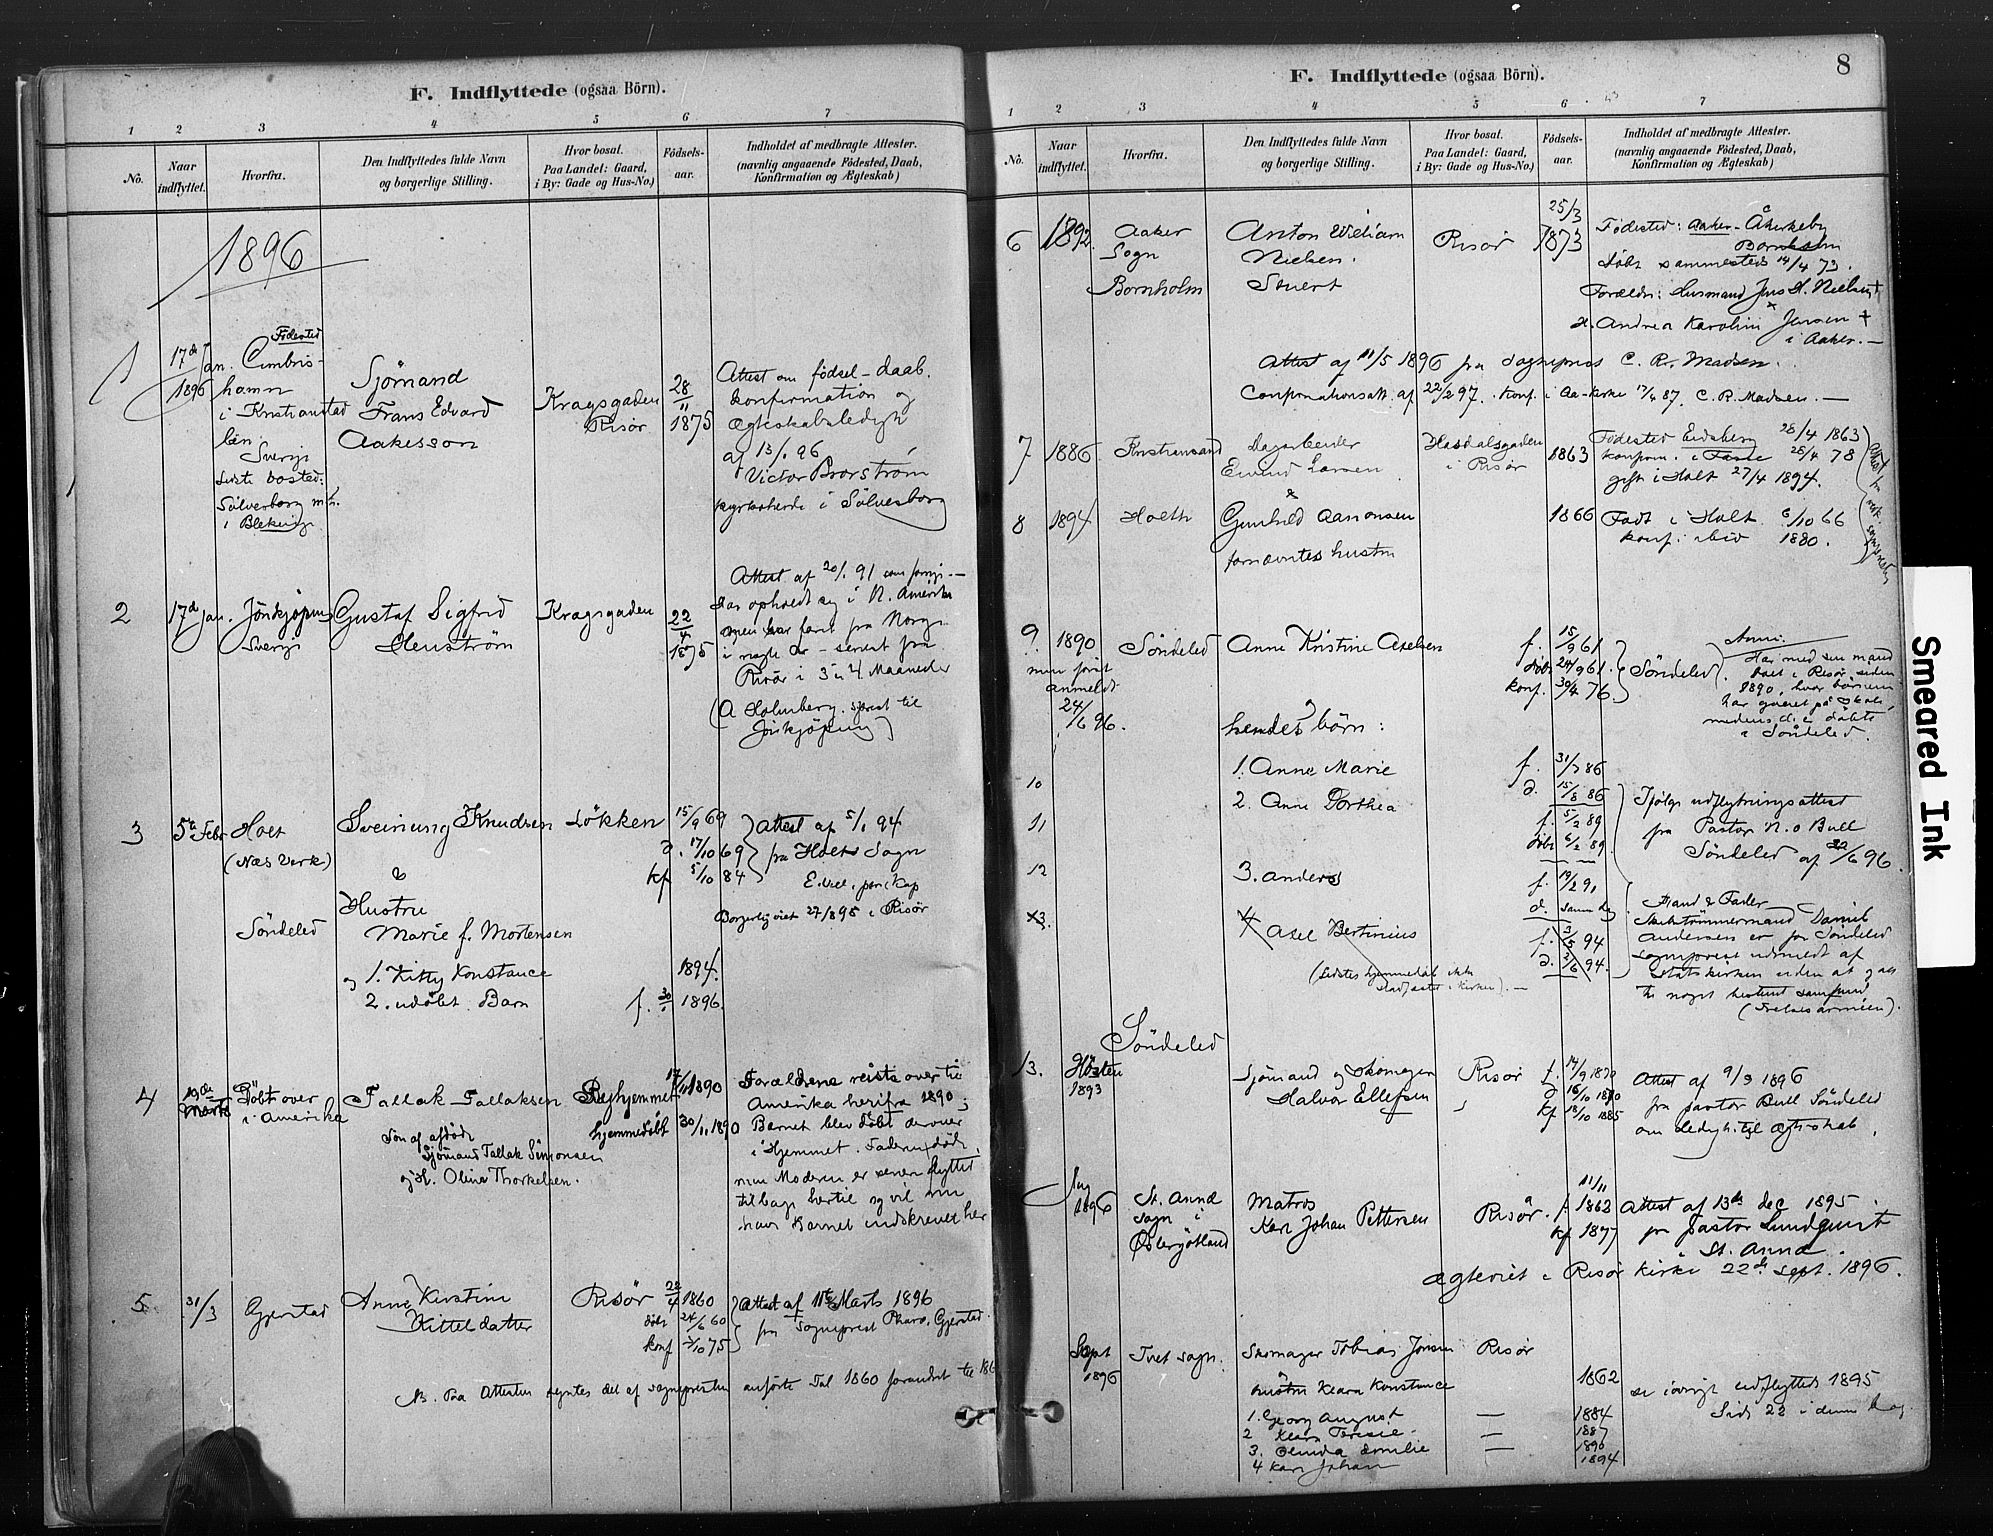 F. Indflyttede (ogsaa Börn).
1 2 3 4 5 6 7
No.
Naar indflyttet.
Hvorfra.
Den Indflyttedes fulde Navn
og borgerlige Stilling.
Hvor bosat.
Paa Landet: Gaard,
i By: Gade og Hus-No.)
Födsels-
aar.
Indholdet af medbragte Attester.
(navnlig angaaende Födested, Daab,
Konfirmation og Ægteskab)
1896
1
17de Jan.
1896
Födested
Cimbris-
hamn
i Kristianstad
län
Sverje
Sidste bosted:
Sölvesborg
i Blekinge
Sjömand
Frans Edvard
Aakesson
Kragsgaden
Risör
28
11
1875
Attest om födsel - daab.
konfirmation og
ægteskabsledighed
af 13/1 96
Victor Brorström
kyrkoherde i Sölvesborg
2
17de Jan.
Jönkjöping
Sverje
Gustaf Sigfrid
Kragsgaden
22
4
1875
Attest af 20/1 91
Har opholdt sig i N. Amerika
men har faret fra Norge
i nogle Aar - senest fra
Risör i 3 à 4 Maaneder
(A Holmberg.
Jönkjöping)
3
5te Febr
Holt
(Næs Verk)
Söndeled
Sveinung Knudsen
&
Hustru
Marie f. Mortensen
og 1. Kitty Konstance
2. udöbt Barn
Lökken
15/9 69
d. 17/10 69
kf 5/10 84
1894.
f. 30/1 1896.
Attest af 5/1 94
fra Holts Sogn
Borgerlig viet 27/8 95 i Risör
4
19de
Marts
Döbt over
i Amerika
Tallak Tallaksen
Sön af afdöde
Sjömand Tallak Simonsen
og H. Oline Thorkelsen.
hjemmedöbt
17/11 1890
30/11 1890
Forældrene reiste over til
Amerika herifra 1890;
Barnet blev döbt derover
i Hjemmet. Faderen döde,
men Moderen er senere flyttet
tilbage hertil og vil nu
have Barnet indskrevet her
5.
31/3
Gjerstad
Anne Kirstine
Kittelsdatter
Risör
22/4 1860
döbt 24/6 60
konf /10 75
Attest af 11te Marts 1896
fra Sogneprest Gjerstad.
NB. Paa Attesten syntes det af sognepresten anförte Tal 1860 forandret til
8
F. Indflyttede (ogsaa Börn).
1 2 3 4 5 6 7
No.
Naar
indflyttet.
Hvorfra.
Den Indflyttedes fulde Navn
og borgerlige Stilling.
Hvor bosat.
Paa Landet: Gaard,
i By: Gade og Hus-No.)
Födsels-
aar.
Indholdet af medbragte Attester.
(navnlig angaaende Födested, Daab,
Konfirmation og Ægteskab)
6
1892.
Aaker
Sogn
Bornholm
Anton William
Nielsen.
Stuert
Risör
25/3
1873
Födested: Aaker - Åkirkeby
Bornholm
Döbt sammesteds 14/4 73.
Forældre: Husmand Jens H. Nielsen †
H. Andrea Karolin Jensen †
i Aaker. —
Attest af 11/5 1896 fra Sogneprest C. R. Madsen.
Confirmationsatt. af 22/2 97. Konf. i Aa-kirke 17/4 87. C. R. Madsen. —
7
1886.
Kristiansand
Dagarbeider
Eivind Larsen
&
Hasdalsgaden
i Risör
1863
Födested Eidsberg 28/4 1863
konfirm. 28/4 78
gift i Holt 27/4 1894.
8
1894
Holth
Gunhild Aanonsen
fornævntes hustru
1866
Födt i Holt 6/10 66
konf. ibid 1880.
9.
1890
men först
anmeldt
24/6 96.
Söndeled
Anne Kristine Axelsen
og
hendes börn:
f. 15/9 61
döbt 24/9 61.
konf. 30/4 76
Söndeled
Anm.
Har med sin mand
boet i Risör siden
1890, hvor börnene
har gaaet på skole,
medens de e döbte
i Söndeled.
10
1. Anne Marie
f. 31/7 86
d. 15/8 86
11
2. Anne Dorthea
f. 5/2 89
döbt 6/2 89
Ifölge udflytningsattest
fra Pastor N. O Bull
Söndeled af /6 96.
12
3. Anders
f. 19/2 91
d. samme dag
13.
4 Axel Bertinius
(Sidstes hjemmedåb ikke
stadfæstet i kirken). —
f. 3/5 94
d. 3/6 94.
Mand & Fader
Skibstömmermand Daniel
Andersen er for Söndeled
sogneprest udmeldt af
statskirken uden at gaa
til noget bestemt samfund
(Frelsesarmeen).
Söndeled
13.
Hösten
1893
Sjömand og Skomager
Halvor Ellefsen
Risör
f. 14/9 1870
d 16/10 1870
kf 18/10 1885
Attest af 9/3 1896
fra pastor Bull Söndeled
om ledighed til ægteskab.
Aug
1896
St. Anna
sogn i
Östergötland
Matros
Karl Johan Pettersen
Risör.
11/11
f. 1862
kf 1877
Attest af 13de dec 1895
fr pastor Lundqvist
St. Anna
ægteviet i Risör kirke 22de sept. 1896.
Sept
1896
Tvet sogn.
Skomager Tobias Jensen
Risör
hustru Klara Konstance
1862
1. Georg August — 1884
2 Klara Teresie — 1887
3. Olinda Emilie — 1890
4 Karl Johan 1894
se iövrigt udflyttede 1895
Side 22 i denne bog.
Smeared Ink